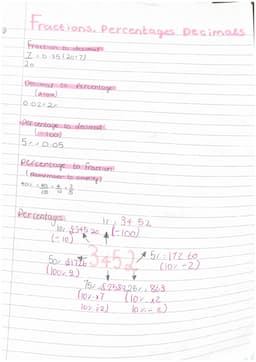 Fractions, Percentages Decimals
Fraction to decimal
7/20 = 0.35 (20÷7)
Decimal to Percentage
(×100)
0.02 = 2%
Percentage to decimal
(÷100)
5% = 0.05
Percentage to fraction
(Remember to simplify)
40% = 40/100 = 4/10 = 2/5
Percentages
1% = 34.52
(÷100)
10% 345.20
(÷10)
3452
5% = 172.60
(10% ÷2)
50% 1726
75%
25% = 863
(10% ×7
(10% ×2